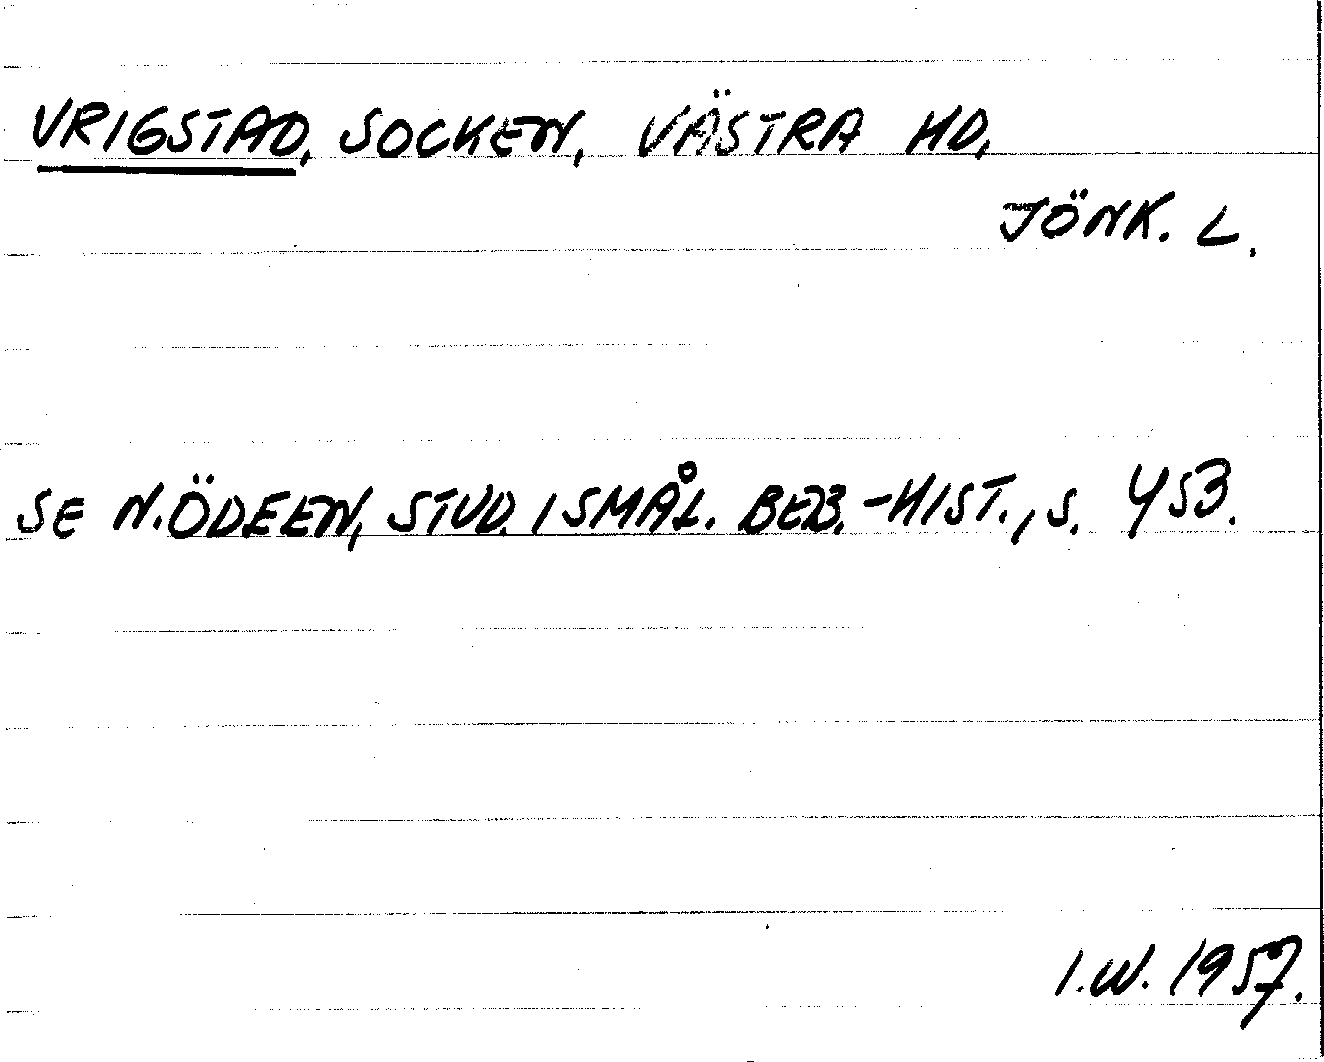 VRIGSTAD, SOCKEN, VÄSTRA HD,
JÖNK. L.
SE N. ÖDEEN, STUD. I SMÅL. BEB.-HIST., S. 453.
I.W. 1957.